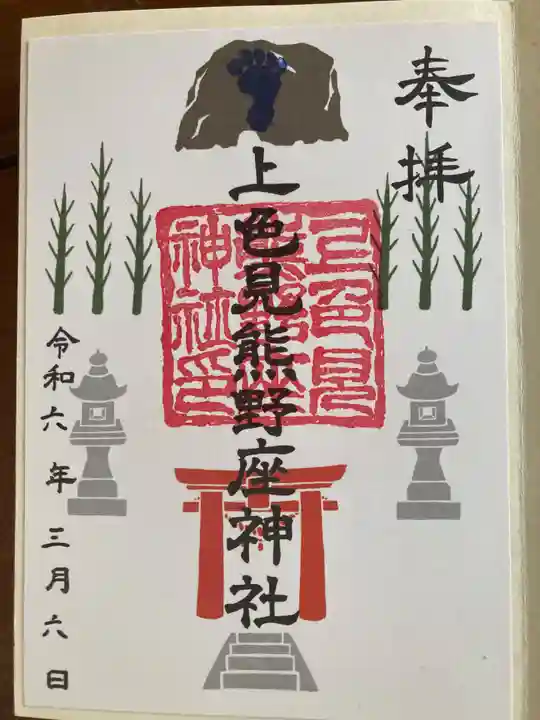 奉拝
上色見熊野座神社
上色見熊野座神社印
令和六年三月六日